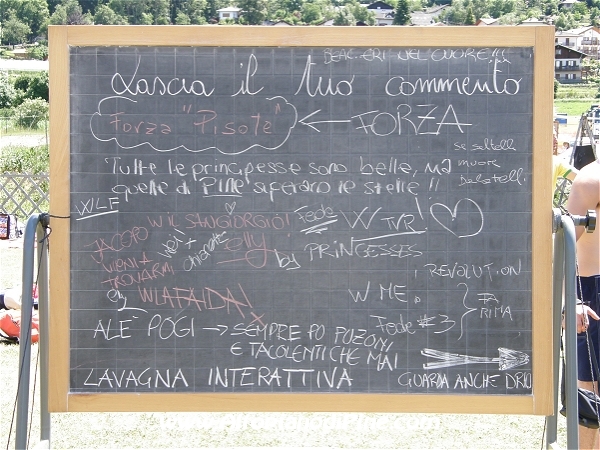 NEL CUORE!!!
Lascia il tuo commento
Forza "Pisote" ← FORZA
se saltelli
muore
Balotelli
Tutte le principesse sono belle, ma
quelle di PINE' superano le stelle!!
WLF
W IL SANGIORGIO!
Fede
W TVR!
JACOPO
VIENI A
TROVARMI
by PRINCESSES
REVOLUTION
W LA FAIDA!
W ME
FA
RIMA
Fede #3
ALÈ POGI → SEMPRE PO POZONI
E TACOLENTI CHE MAI
LAVAGNA INTERATTIVA
GUARDA ANCHE DRIO